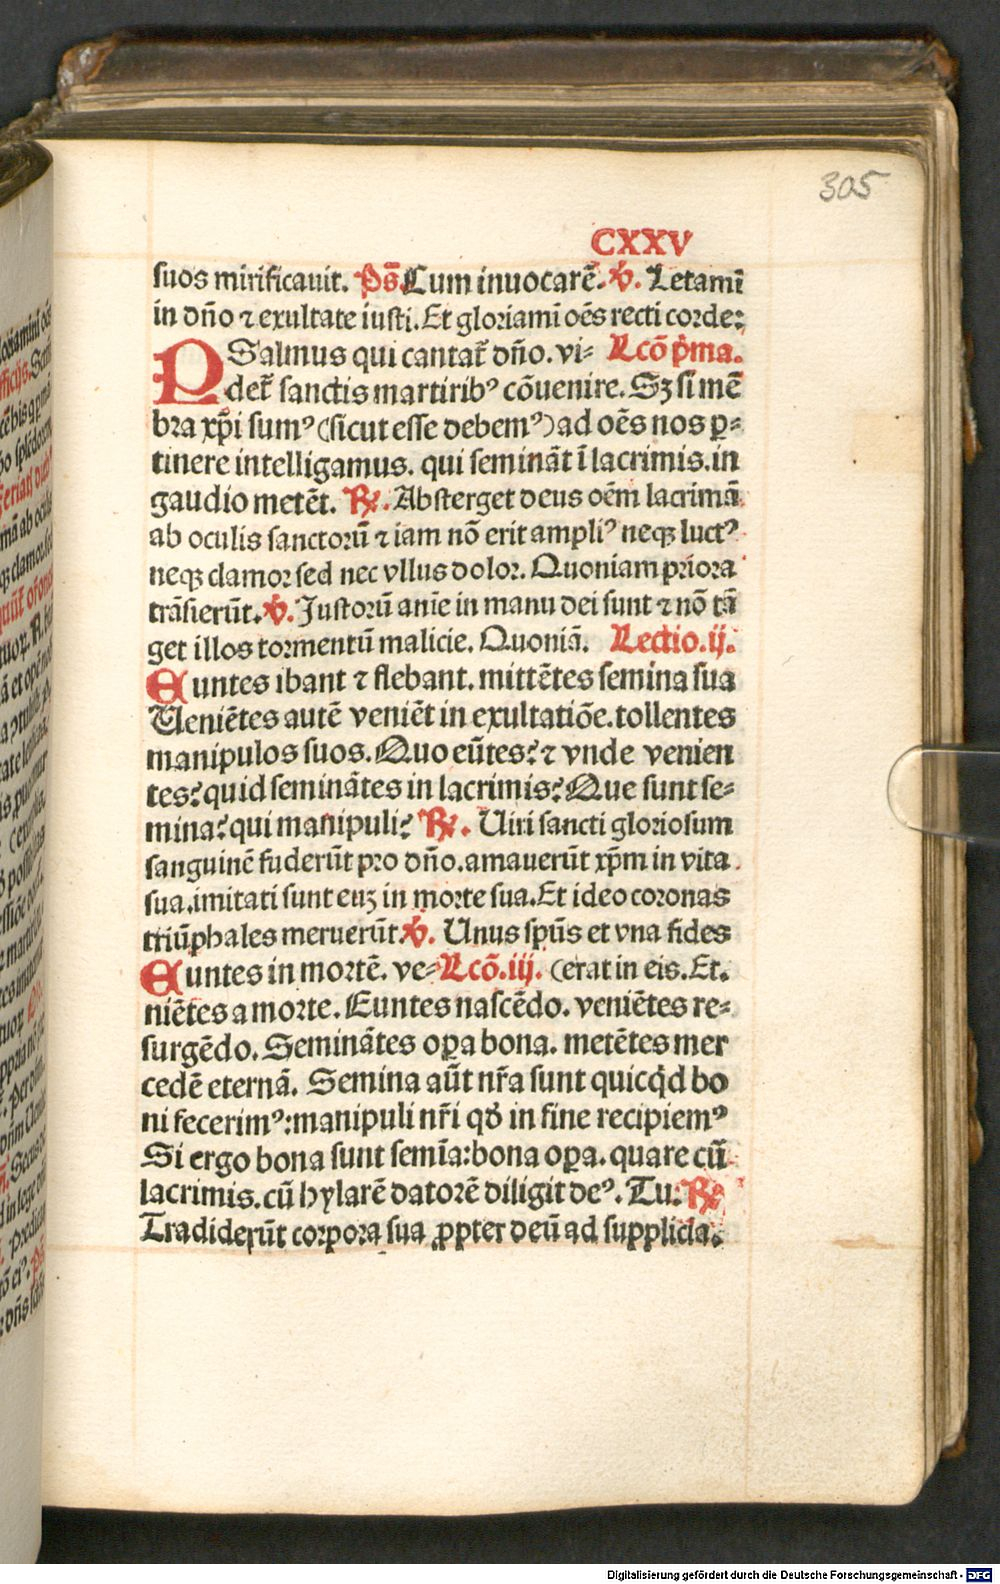 305
CXXV
suos mirificauit. P̄s̄ Cum inuocarē. ℣. Letamī
in dn̄o ⁊ exultate iusti. Et gloriamī oēs recti corde:
PSalmus qui cantat̄ dn̄o. vi⸗ Lcō p̄ma.
det̄ sanctis martiribꝰ cōuenire. Sꝫ si mē
bra xp̄i sumꝰ (sicut esse debemꝰ) ad oēs nos ꝑ⸗
tinere intelligamus. qui semināt ī lacrimis. in
gaudio metēt. ℟. Absterget deus oēm lacrimā
ab oculis sanctorū ⁊ iam nō erit ampliꝰ neqꝫ luctꝰ
neqꝫ clamor sed nec vllus dolor. Quoniam priora
trāsierūt. ℣. Justorū anīe in manu dei sunt ⁊ nō tā
get illos tormentū malicie. Quoniā. Lectio.ij.
Euntes ibant ⁊ flebant. mittētes semina sua
Ueniētes autē veniēt in exultatiōe. tollentes
manipulos suos. Quo eūtes? ⁊ vnde venien
tes? quid seminātes in lacrimis? Que sunt se⸗
mina? qui manipuli? ℟. Uiri sancti gloriosum
sanguinē fuderūt pro dn̄o. amauerūt xp̄m in vita
sua. imitati sunt euꝫ in morte sua. Et ideo coronas
triūphales meruerūt. ℣. Unus sp̄us et vna fides
Euntes in mortē. ve⸗ Lcō.iij. (erat in eis. Et.
niētes a morte. Euntes nascēdo. veniētes re⸗
surgēdo. Seminātes oꝑa bona. metētes mer
cedē eternā. Semina aūt nr̄a sunt quicq̄d bo
ni fecerimꝰ: manipuli nr̄i qd̄ in fine recipiemꝰ
Si ergo bona sunt semīa: bona oꝑa. quare cū
lacrimis. cū hylarē datorē diligit deꝰ. Tu. ℟.
Tradiderūt corpora sua ꝓpter deū ad supplicia.
Digitalisierung gefördert durch die Deutsche Forschungsgemeinschaft - DFG